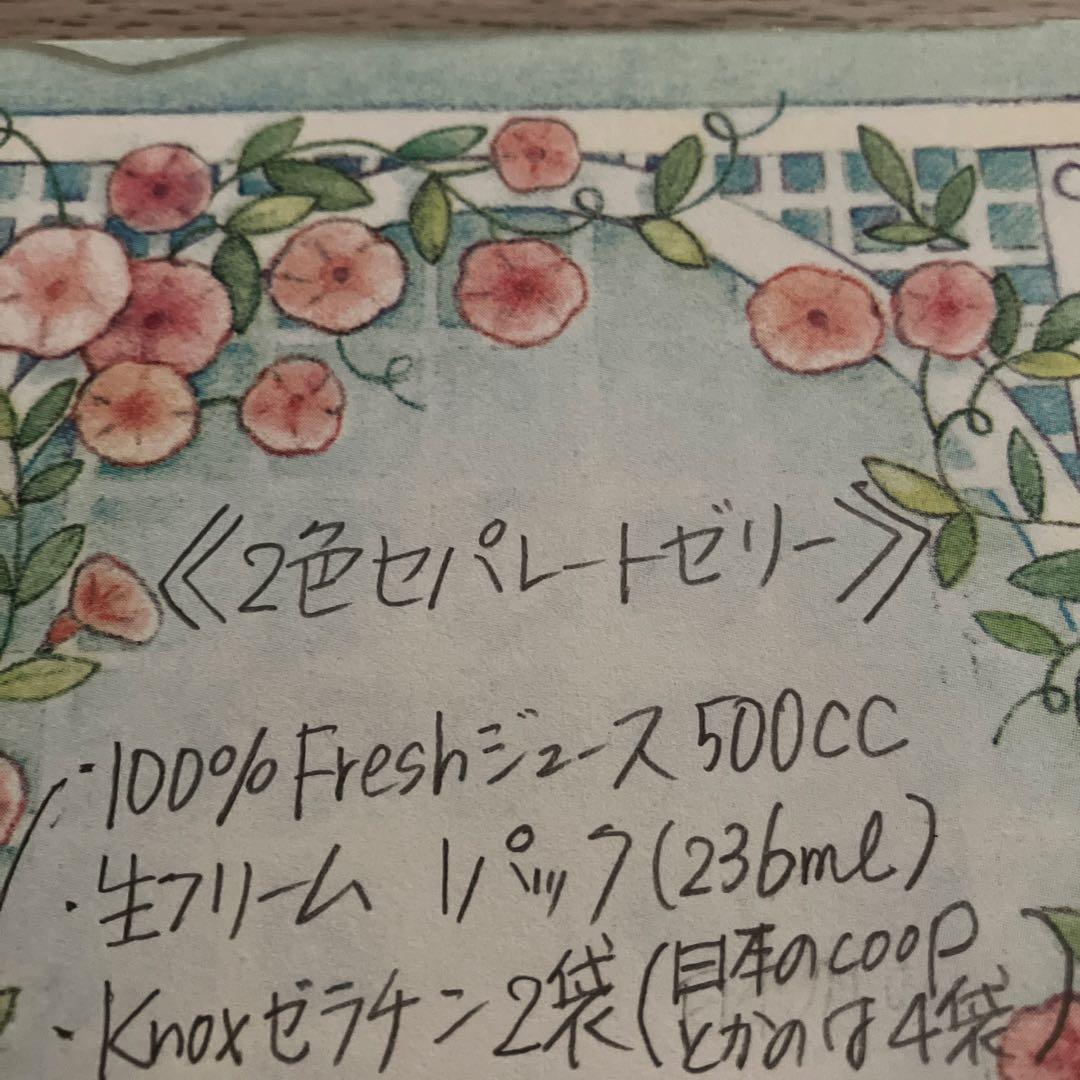 《2色セパレートゼリー》
・100%Freshジュース 500cc
・生クリーム 1パック(236ml)
・Knoxゼラチン 2袋(日本のcoopとかのは4袋)